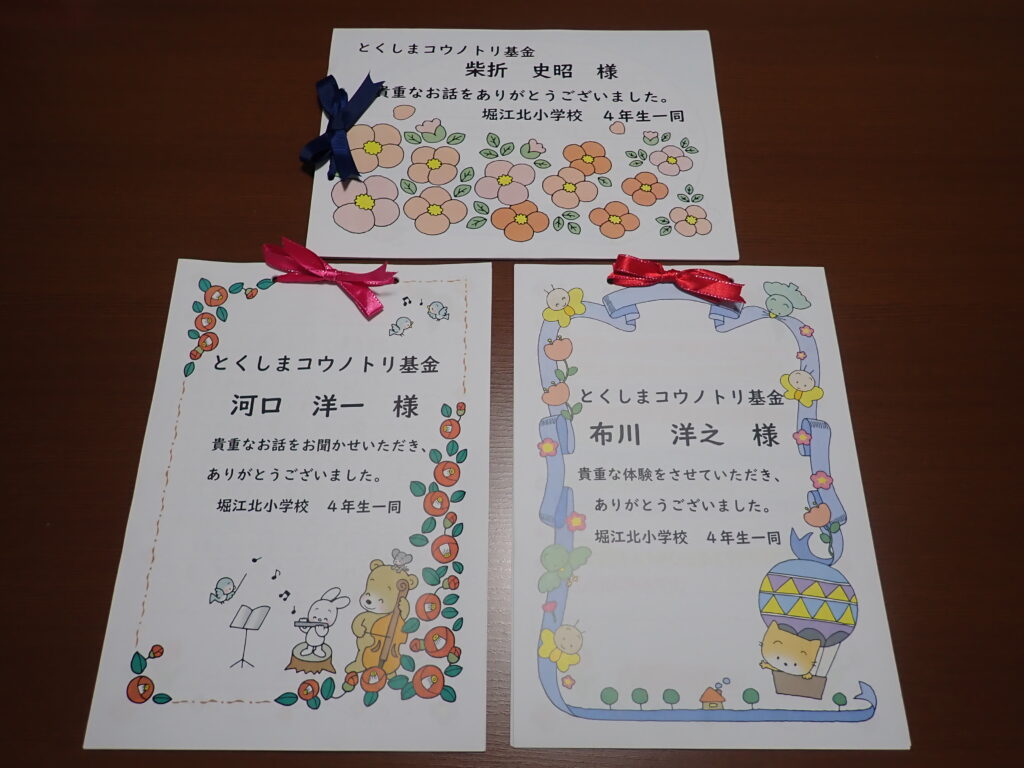 とくしまコウノトリ基金
柴折 史昭 様
貴重なお話をありがとうございました。
堀江北小学校 4年生一同
とくしまコウノトリ基金
河口 洋一 様
貴重なお話をお聞かせいただき、
ありがとうございました。
堀江北小学校 4年生一同
とくしまコウノトリ基金
布川 洋之 様
貴重な体験をさせていただき、
ありがとうございました。
堀江北小学校 4年生一同